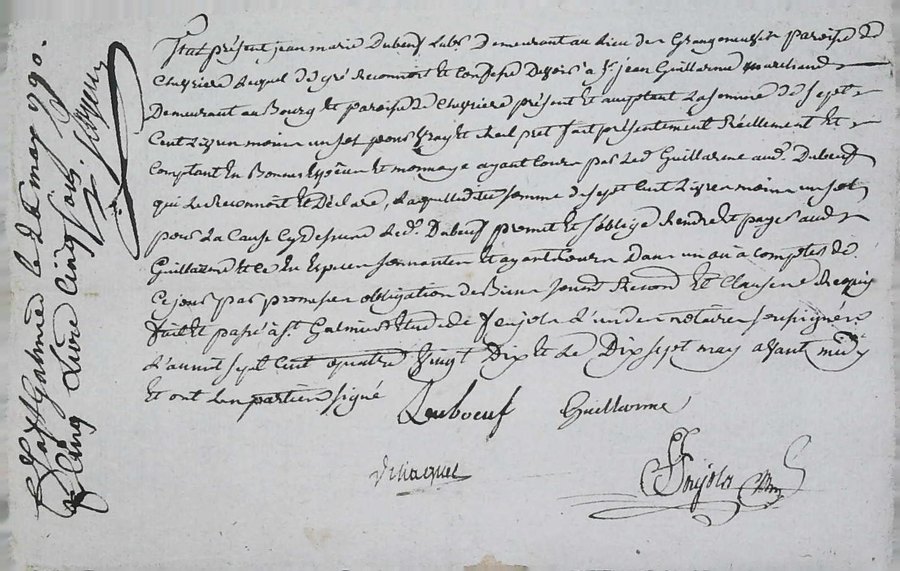 Fut présent jean marie Duboeuf Lab. Demeurant au lieu des Grangeneuve paroisse de
Cheyriere Lequel de gré Reconnoit et Confesse Devoir a Sr. jean Guillarme marchand
Demeurant au Bourg et paroisse de Cheyriere présent et acceptant La somme de sept
Cent Livres moins un sol pour vray et Réel pret fait présentement Réellement et
Comptant En Bonnes Espèces et monnoye ayant Cours par Led. Guillarme aud. Duboeuf
qui Le Reconnoit et Déclare, Laquelle dite somme de sept Cent Livres moins un sol
pour La Cause Cy Dessus Led. Duboeuf promet et s'oblige Rendre et payer aud.
Guillarme et Ce En Especes sonnantes et ayant Cours Dans un an à Compter de
Ce jour par promesse obligation de Biens soumt. Renond. Et Clauses Requises
fait et passé à St. Galmier Etude de Fenjols L'un des notaires soussignés
L'an mil sept Cent quatre Vingt Dix et Le Dix sept may avant midy
Et ont Les parties signé
Duboeuf Guillarme
St Galmier le 26 may 1790.
Cinq Livre Cinq sols